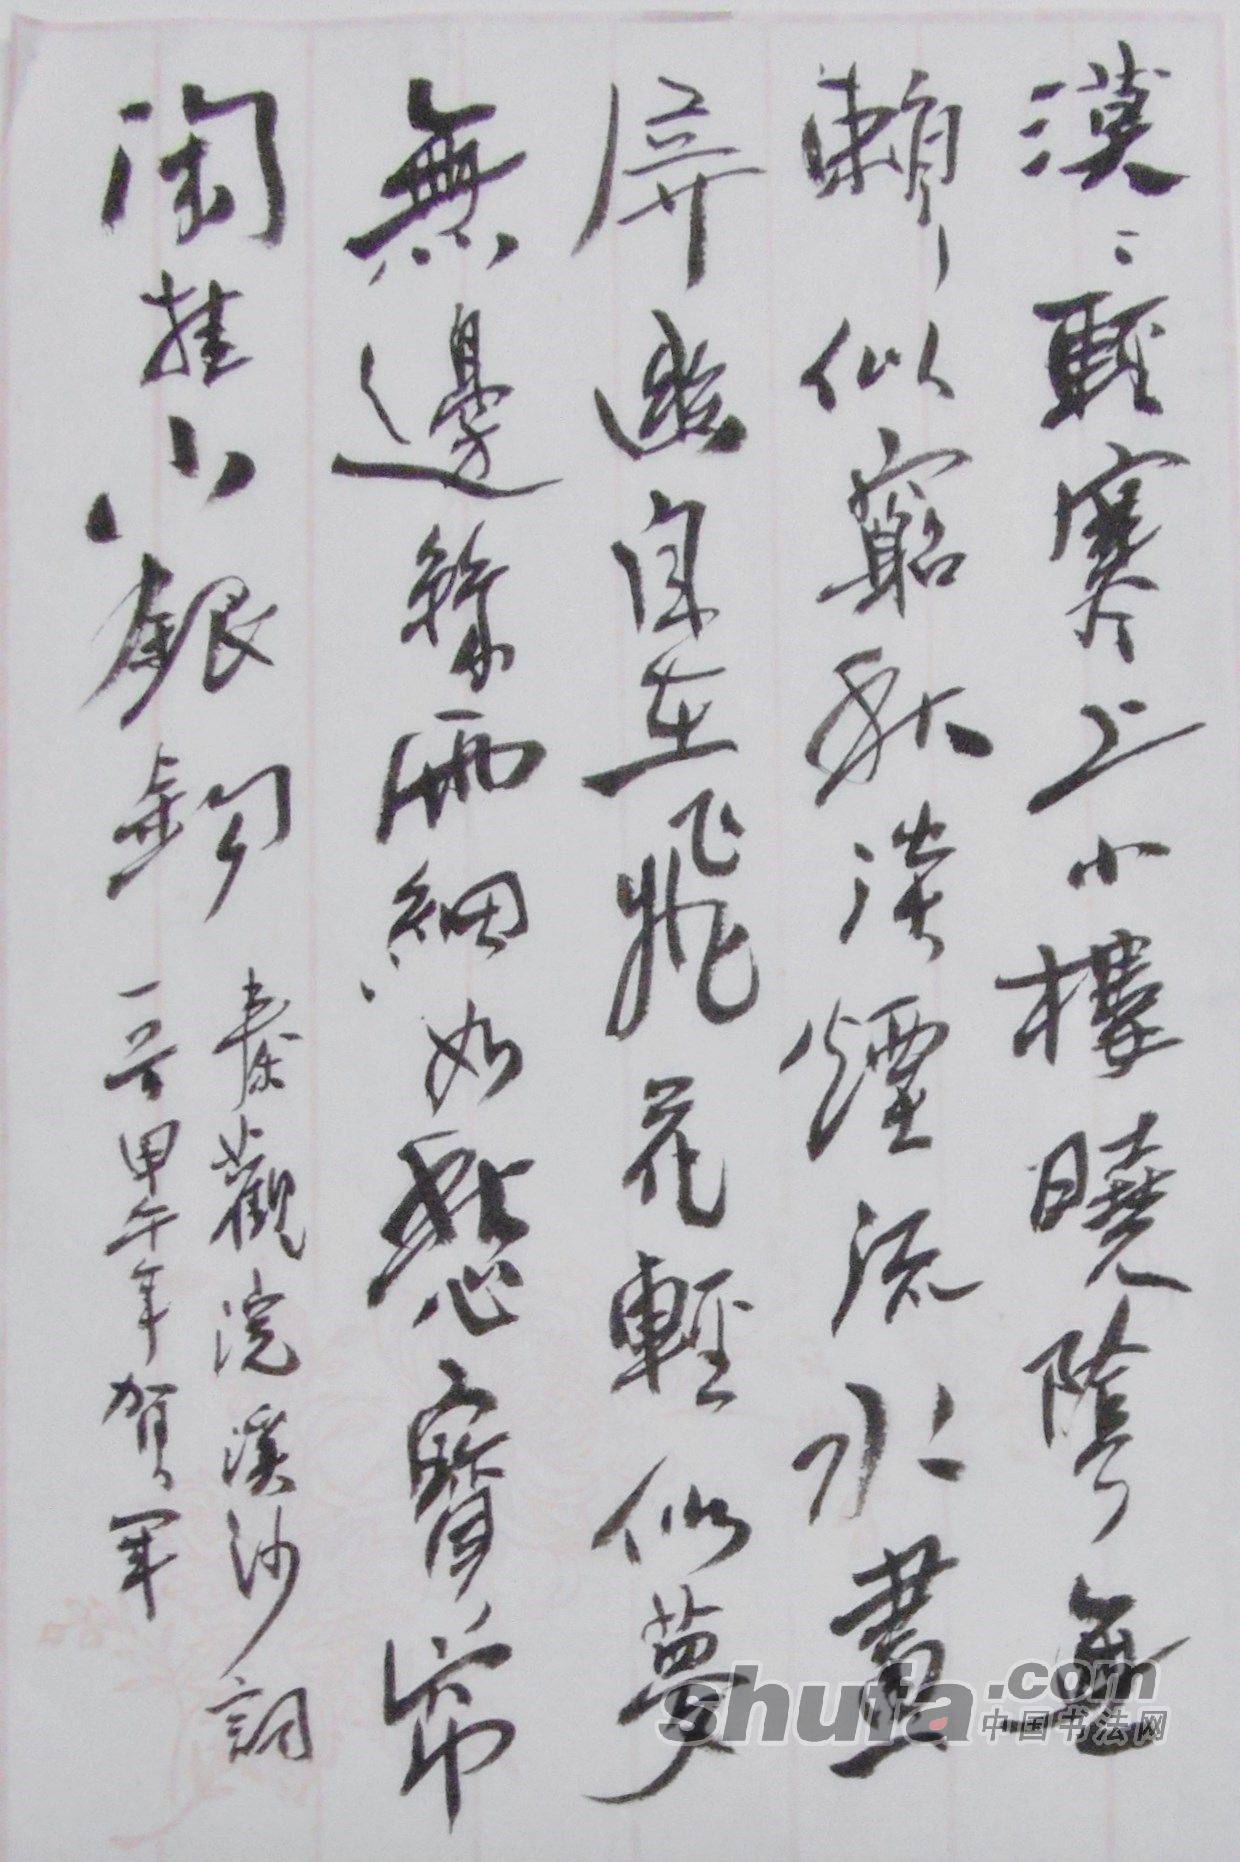 漠〻輕寒上小樓曉陰無
賴似窮秋淡煙流水畫
屏幽自在飛花輕似夢
無邊絲雨細如愁寶帘
閑挂小銀鉤
秦觀浣溪沙詞
甲午年賀軍
shufa.com
中国书法网